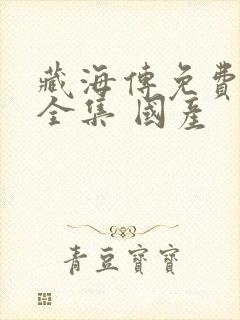 藏海傳免費
全集 國產
青豆寶寶